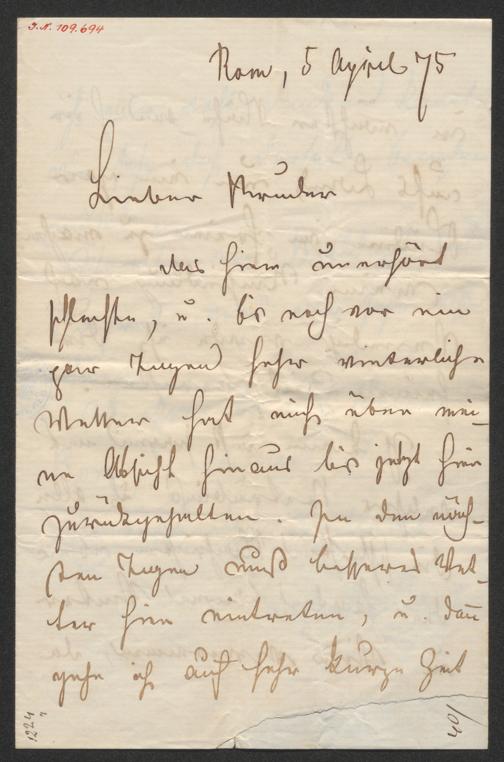 J.N. 109.694
Rom, 5 April 75
Lieber Bruder
das hier unerhört
schlechte, u. bis noch vor ein
paar Tagen sehr winterliche
Wetter hat mich über mei-
ne Absicht hinaus bis jetzt hier
zurückgehalten. In den näch-
sten Tagen muß besseres Wet-
ter hier eintreten, u. dan̄
gehe ich auf sehr kurze Zeit
1224